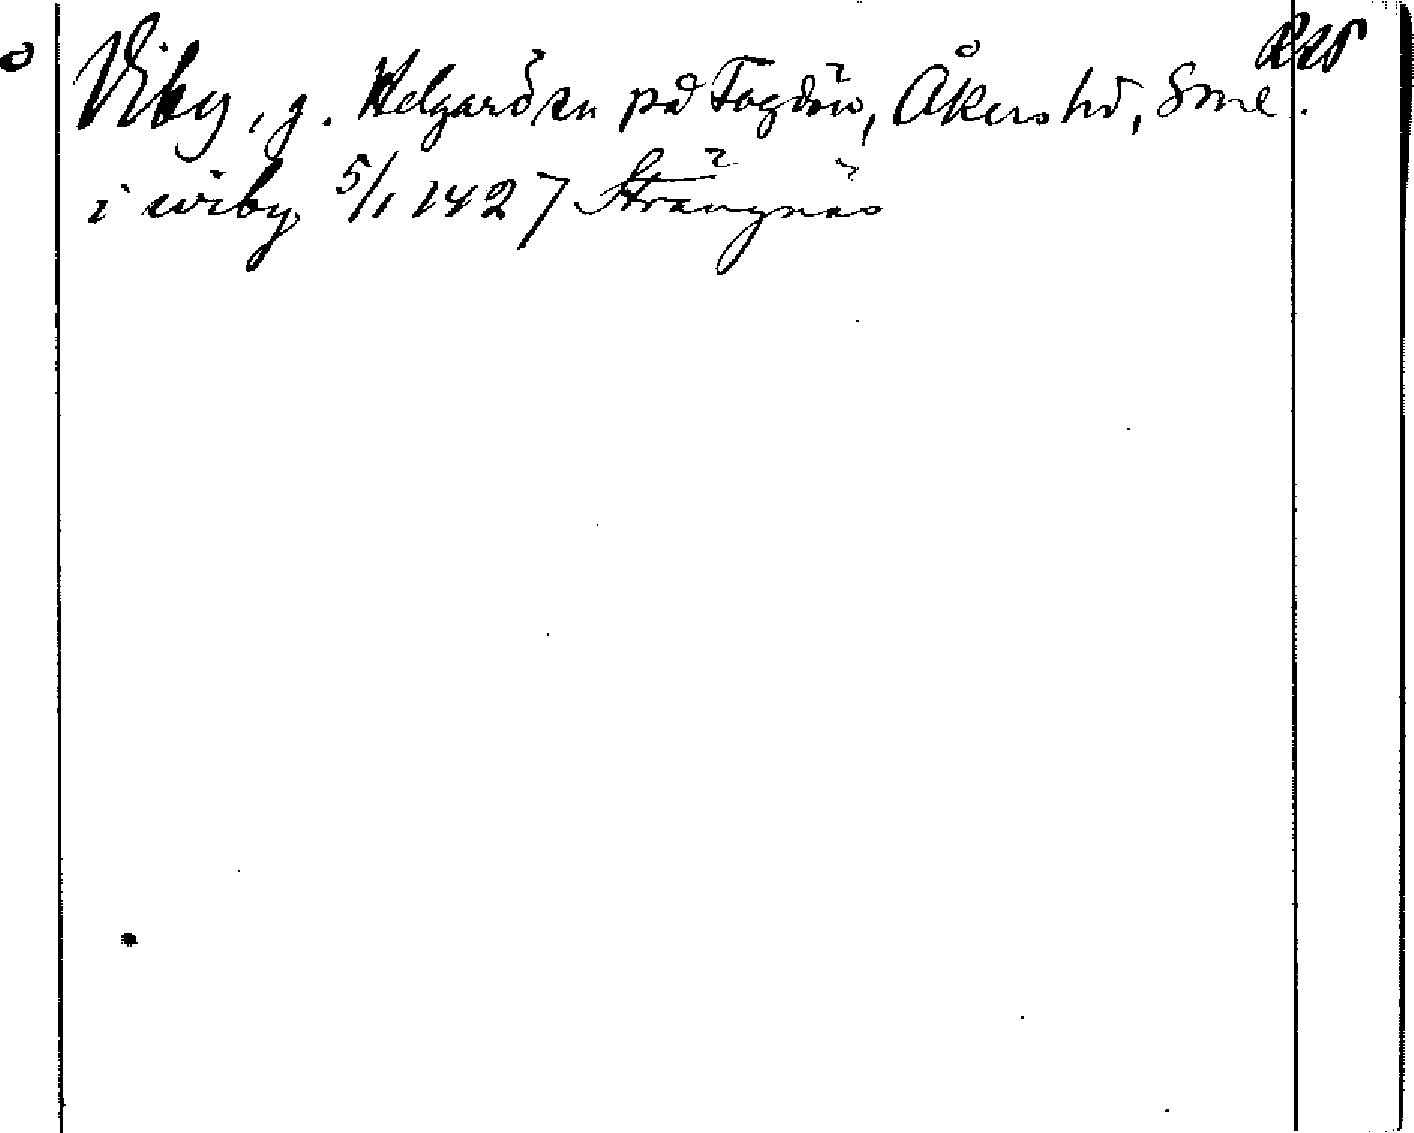 Viby, g. Helgarö sn på Fogdön, Åkers hd, Sml.
i wiby 5/1 1427 Strängnäs